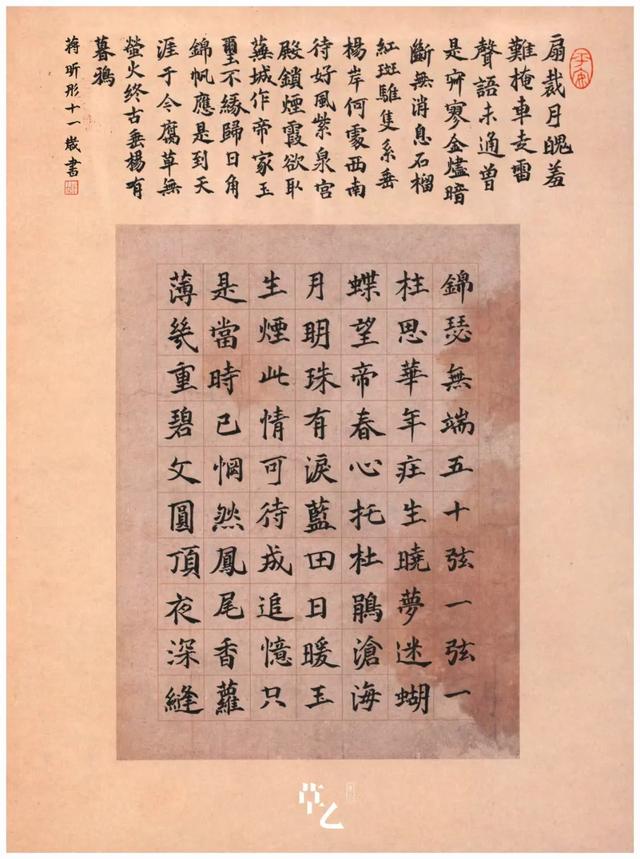 錦瑟無端五十弦一弦一
柱思華年莊生曉夢迷蝴
蝶望帝春心托杜鵑滄海
月明珠有淚藍田日暖玉
生煙此情可待成追憶只
是當時已惘然鳳尾香蘿
薄幾重碧文圓頂夜深縫
扇裁月魄羞
難掩車走雷
聲語未通曾
是寂寥金燼暗
斷無消息石榴
紅斑騅隻系垂
楊岸何處西南
待好風紫泉宮
殿鎖煙霞欲取
蕪城作帝家玉
璽不緣歸日角
錦帆應是到天
涯于今腐草無
螢火終古垂楊有
暮鴉
蔣昕彤十一歲書